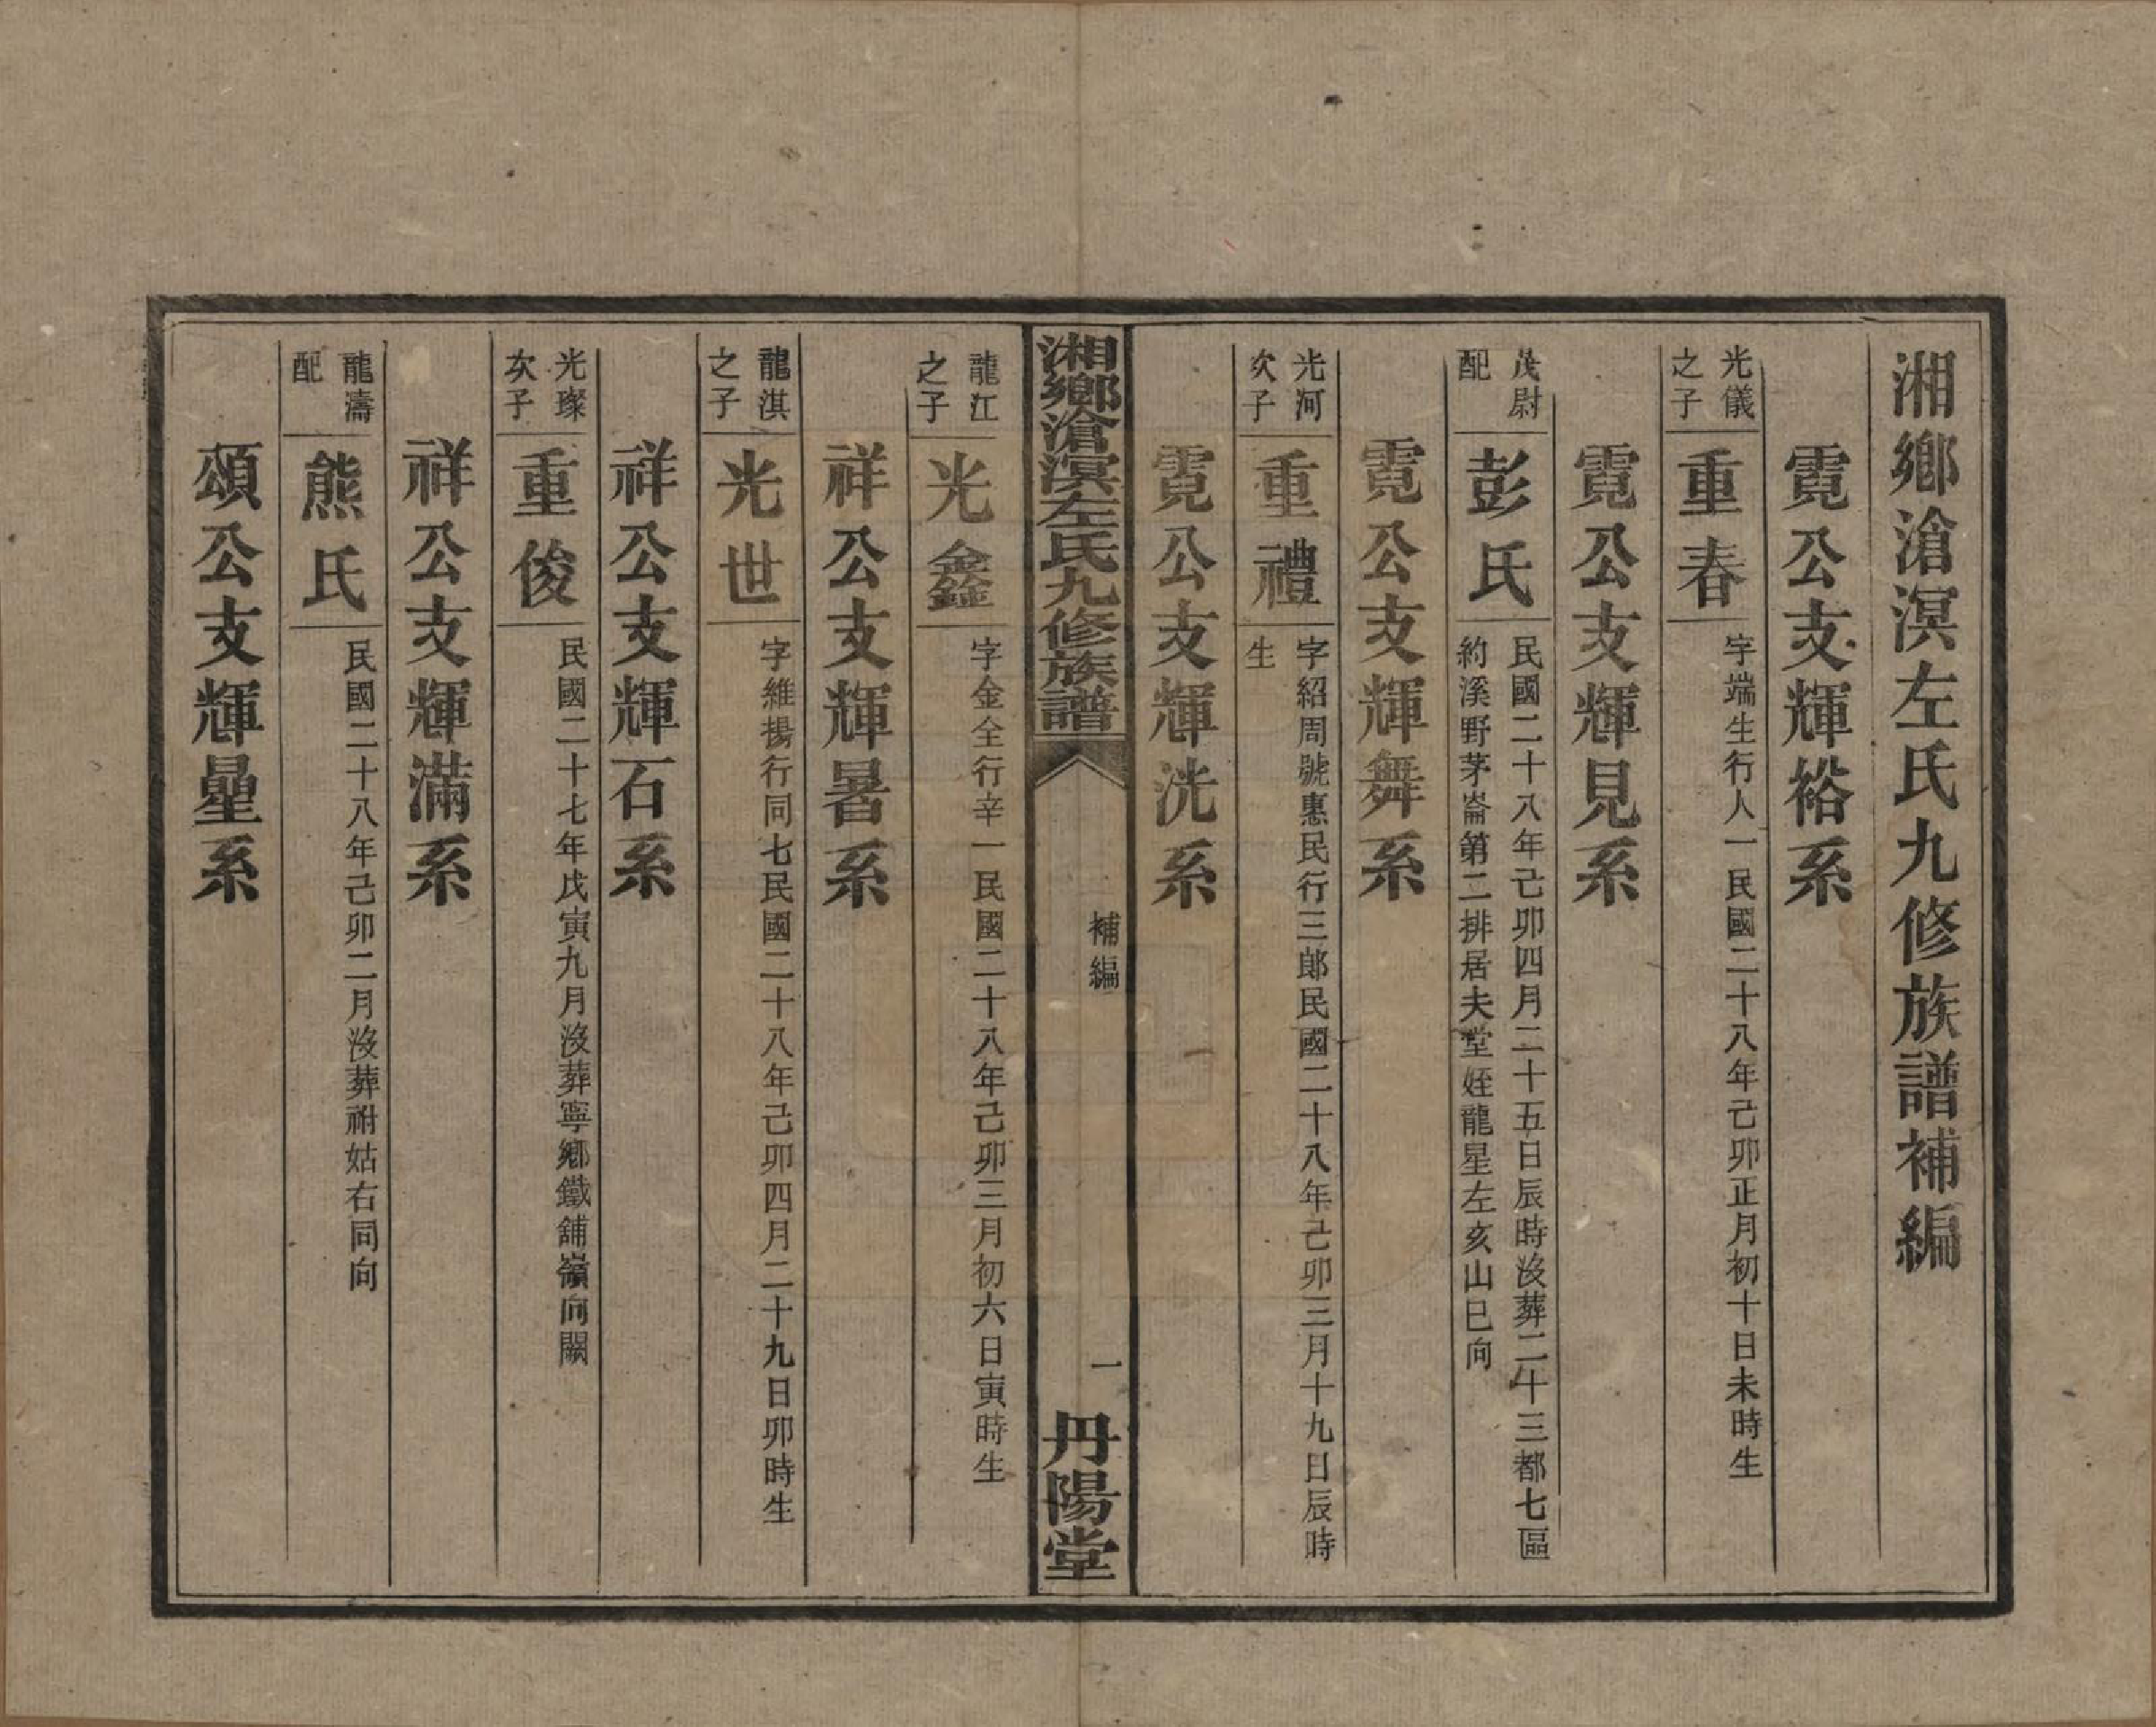 湘鄉滄溟左氏九修族譜補編
霓公支輝裕系
光儀
之子
重春
字端生行人一民國二十八年己卯正月初十日未時生
霓公支輝見系
茂尉
配
彭氏
民國二十八年己卯四月二十五日辰時沒葬二十三都七區
約溪野茅崙第二排居夫堂姪龍星左亥山巳向
霓公支輝舞系
光河
次子
重禮
字紹周號惠民行三郎民國二十八年己卯三月十九日辰時
生
霓公支輝洸系
湘鄉滄溟左氏九修族譜
補編
一
丹陽堂
龍江
之子
光鑫
字金全行辛一民國二十八年己卯三月初六日寅時生
祥公支輝晷系
龍淇
之子
光世
字維揚行同七民國二十八年己卯四月二十九日卯時生
祥公支輝石系
光璨
次子
重俊
民國二十七年戊寅九月沒葬寧鄉鐵舖嶺向闕
祥公支輝滿系
龍濤
配
熊氏
民國二十八年己卯二月沒葬祔姑右同向
頌公支輝星系